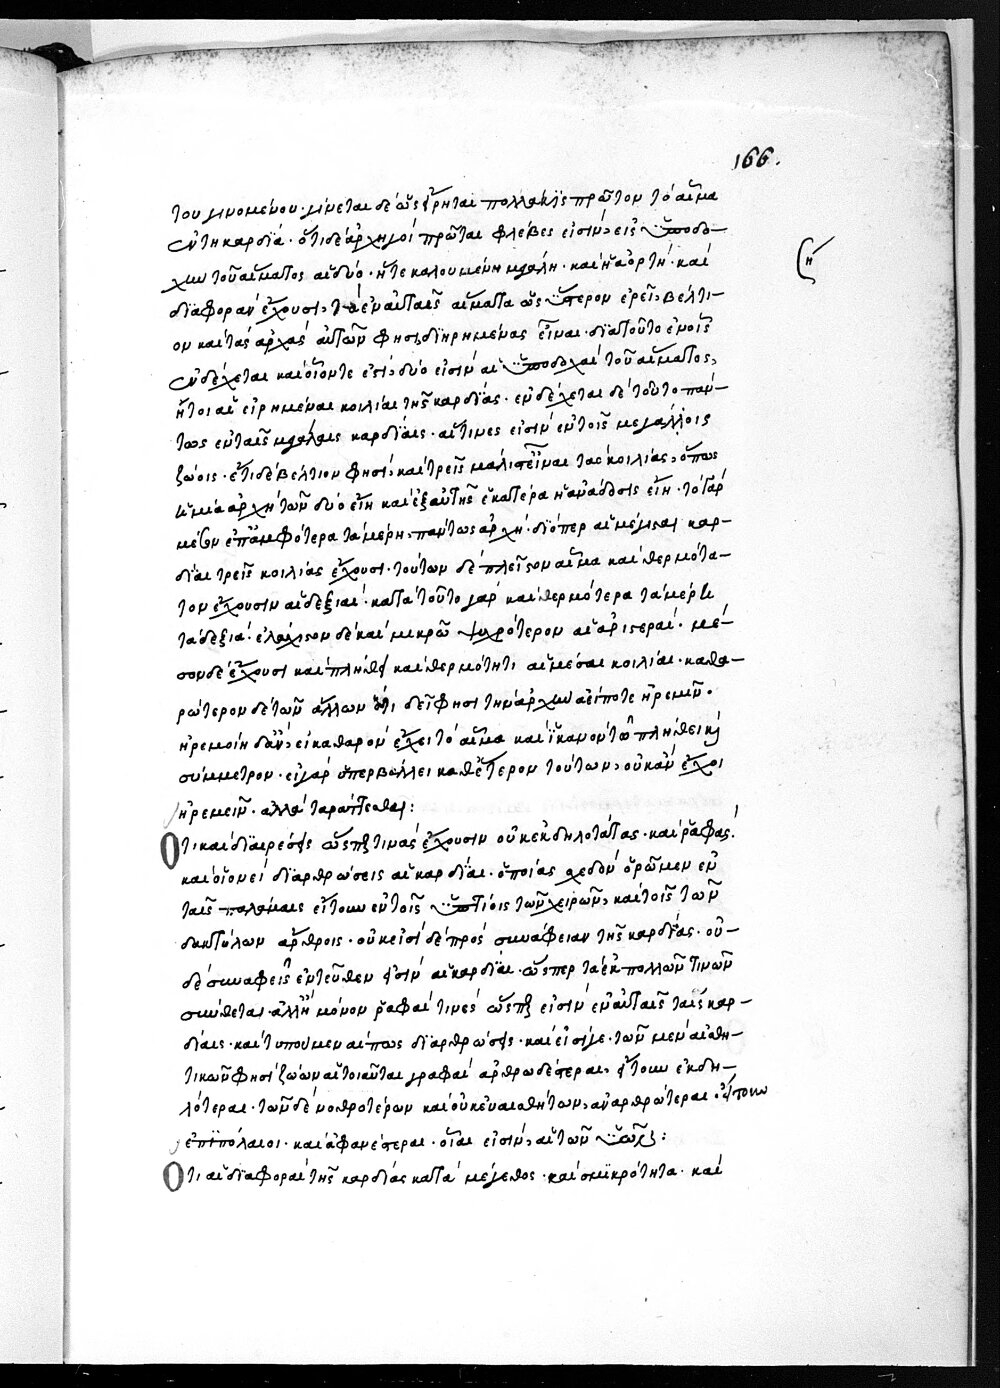 166.
του γινομένου· γίνεται δὲ ὡς εἴρηται πολλακις πρῶτον τὸ αἷμα
ἐν τῆ καρδία· ὅτι δὲ ἀρχηγοὶ πρῶται φλέβες εἰσὶν, εἰς ὑποδο-
χὴν τοῦ αἵματος αἱ δύο· ἥτε καλουμένη μεγάλη· καὶ ἡ ἀορτή· καὶ
(η
διαφορὰν ἔχουσι, τὰ ἐν αὐταῖς αἵματα ὡς ὕστερον ἐρεῖ, βέλτι-
ον καὶ τὰς ἀρχὰς αὐτῶν φησι, διηρημένας εἶναι· διατοῦτο ἐν οἷς
ἐνδέχεται καὶ οἷόντε ἐστὶ, δύο εἰσὶν αἱ ὑποδοχαὶ τοῦ αἵματος,
ἤτοι αἱ εἰρημέναι κοιλίαι τῆς καρδίας· ἐνδέχεται δὲ τοῦτο πάν-
τως ἐν ταῖς μεγάλαις καρδίαις· αἵτινες εἰσὶν ἐν τοῖς μεγάλοις
ζώοις· ἔτι δὲ βέλτιον φησὶ, καὶ τρεῖς μάλιστ' εἶναι τὰς κοιλίας, ὅπως
ἡ μία ἀρχὴ τῶν δύο εἴη καὶ ἐξ αὐτῆς ἑκατέρα ἡ ἀνάδοσις εἴη· τὸ γὰρ
μέσον ἐπ' ἀμφότερα τὰ μέρη, πάντως ἀρχή· διόπερ αἱ μέγισται καρ-
δίαι τρεῖς κοιλίας ἔχουσι· τούτων δὲ πλεῖστον αἷμα καὶ θερμότα-
τον ἔχουσιν αἱ δεξιαί· κατὰ τοῦτο γὰρ καὶ θερμότερα τὰ μέρη
τὰ δεξιά· ἐλάχιστον δὲ καὶ μικρῶ ψυχρότερον αἱ ἀριστεραί· μέ-
σον δὲ ἔχουσι καὶ πλήθει καὶ θερμότητι αἱ μέσαι κοιλίαι· καθα-
ρώτερον δὲ τῶν ἄλλων ὅτι δεῖ φησι τὴν ἀρχὴν ἀείποτε ἠρεμεῖν·
ἠρεμοίη δ' ἂν, εἰ καθαρὸν ἔχει τὸ αἷμα καὶ ἱκανὸν τῶ πλήθει καὶ
σύμμετρον· εἰ γὰρ ὑπερβάλλει καθ' ἕτερον τούτων, οὐκ ἂν ἔχοι
ἠρεμεῖν· ἀλλὰ ταράττεσθαι:
Ὅτι καὶ διαιρέσεις ὥσπερ τινὰς ἔχουσιν οὐκ ἐκδηλοτάτας· καὶ ῥαφὰς·
καὶ οἱονεὶ διαρθρώσεις αἱ καρδίαι· ὁποίας σχεδὸν ὁρῶμεν ἐν
ταῖς παλάμαις εἴτουν ἐν τοῖς ὑπτίοις τῶν χειρῶν, καὶ τοῖς τῶν
δακτύλων ἄρθροις· οὐκ εἰσὶ δὲ πρὸς συνάφειαν τῆς καρδίας· οὐ-
δὲ συναφεῖς ἐντεῦθεν εἰσὶν αἱ καρδίαι· ὥσπερ τὰ ἐκ πολλῶν τινῶν
σύνθετα· ἀλλὴ μόνον ῥαφαί τινες ὥσπερ εἰσὶν ἐν αὐταῖς ταῖς καρ-
δίαις· καὶ τυποῦμεναί πως διαρθρώσεις· καὶ εἰσί γε τῶν μὲν αἰσθη-
τικῶν φησι ζώων αἱ τοιαῦται γραφαὶ ἀρθρωδέστεραι, εἴτουν ἐκδη-
λότεραι· τῶν δὲ νωθροτέρων καὶ οὐκ εὐαισθήτων, ἀναρθρώτεραι· εἴτουν
ἐπιπόλαιοι· καὶ ἀφανέστεραι· οἷαι εἰσὶν, αἱ τῶν
Ὅτι αἱ διαφοραὶ τῆς καρδίας κατὰ μέγεθος· καὶ σμικρότητα· καὶ